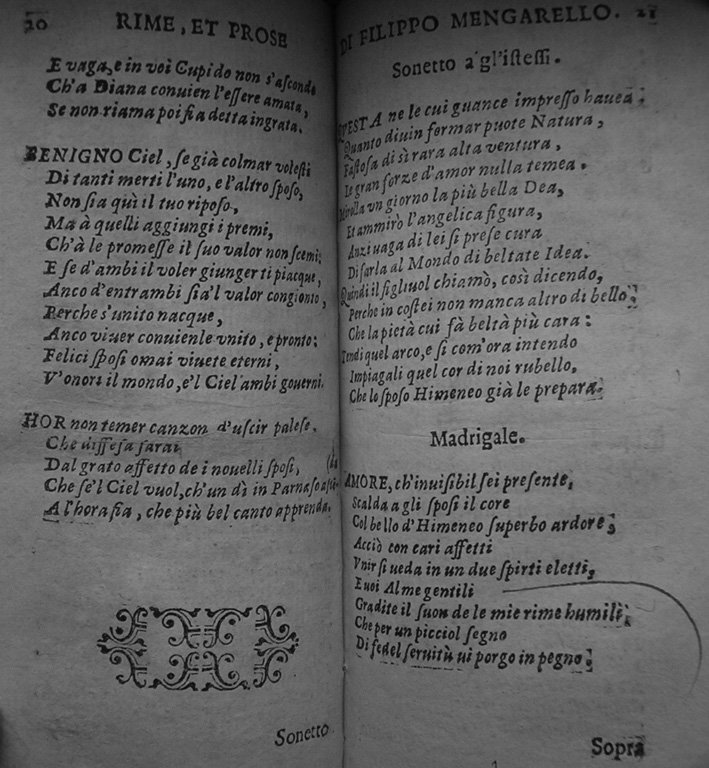 20 RIME, ET PROSE
E vaga, e in voi Cupido non s'asconde
Ch'a Diana conuien l'essere amata,
Se non riama poi fia detta ingrata.
BENIGNO Ciel, se già colmar volesti
Di tanti merti l'uno, e l'altro sposo,
Non sia quì il tuo riposo,
Ma à quelli aggiungi i premi,
Ch'à le promesse il suo valor non scemi;
E se d'ambi il voler giunger ti piacque,
Anco d'entrambi sia'l valor congionto,
Perche s'unito nacque,
Anco viuer conuienle vnito, e pronto:
Felici sposi omai viuete eterni,
V'onori il mondo, e'l Ciel ambi gouerni.
HOR non temer canzon d'uscir palese,
Che diffesa sarai
Dal grato affetto de i nouelli sposi,
Che se'l Ciel vuol, ch'un dì in Parnaso
A l'hora fia, che più bel canto apprenda.
Sonetto
DI FILIPPO MENGARELLO. 21
Sonetto a gl'istessi.
VESTA ne le cui guance impresso hauea
Quanto diuin formar puote Natura,
Fastosa di sì rara alta ventura,
Le gran forze d'amor nulla temea.
Mirolla vn giorno la più bella Dea,
Et ammirò l'angelica figura,
Anzi uaga di lei si prese cura
Di farla al Mondo di beltate Idea.
Quindi il figliuol chiamò, così dicendo,
Perche in costei non manca altro di bello;
Che la pietà cui fà beltà più cara:
Tendi quel arco, e si com'ora intendo
Impiagali quel cor di noi rubello,
Che lo sposo Himeneo già le prepara.
Madrigale.
AMORE, ch'inuisibil sei presente,
Scalda a gli sposi il core
Col bello d'Himeneo superbo ardore;
Acciò con cari affetti
Vnir si ueda in un due spirti eletti,
E uoi Alme gentili
Gradite il suon de le mie rime humili;
Che per un picciol segno
Di fedel seruitù ui porgo in pegno.
Sopra